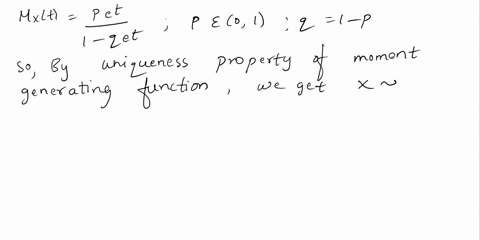 Mx(t) = pet / 1 - qet ; P ε (0, 1) ; q = 1-P
So, By uniqueness property of moment
generating function, we get x ~